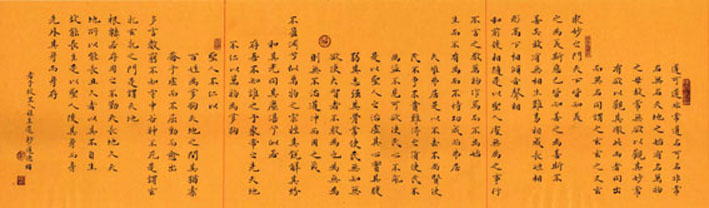 道可道非常道名可名非常
名無名天地之始有名萬物
之母故常無欲以觀其妙常
有欲以觀其徼此兩者同出
而異名同謂之玄玄之又玄
眾妙之門天下皆知美
之為美斯惡已皆知善之為善斯不
善矣故有無相生難易相成長短相
形高下相傾音聲相
和前後相隨是以聖人處無為之事行
不言之教萬物作焉而不為始
生而不有為而不恃功成而弗居
夫唯弗居是以不去不尚賢使
民不爭不貴難得之貨使民不
為盜不見可欲使民心不亂
是以聖人之治虛其心實其腹
弱其志強其骨常使民無知無
欲使夫智者不敢為也為無為
則無不治道沖而用之或
不盈淵兮似萬物之宗挫其銳解其紛
和其光同其塵湛兮似或
存吾不知誰之子象帝之先天地
不仁以萬物為芻狗
聖人不仁以
百姓為芻狗天地之間其猶橐
籥乎虛而不屈動而愈出
多言數窮不如守中谷神不死是謂玄
牝玄牝之門是謂天地
根綿綿若存用之不勤天長地久天
地所以能長且久者以其不自生
故能長生是以聖人後其身而身
先外其身而身存